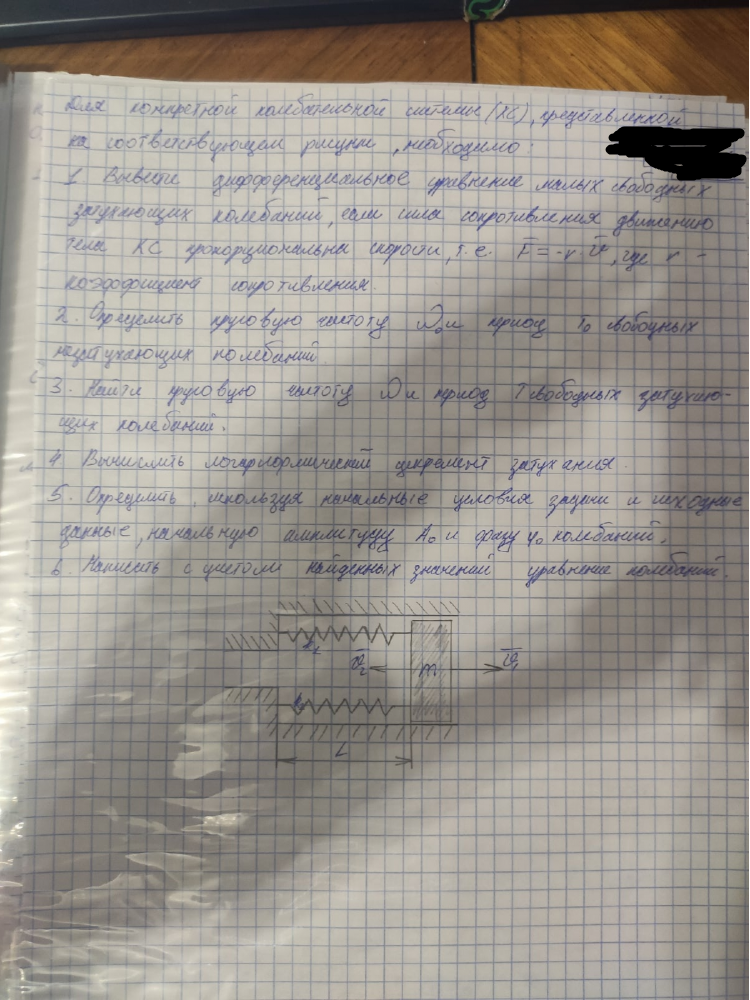 Для конкретной колебательной системы (КС), представленной
на соответствующем рисунке, необходимо:
1 Вывести дифференциальное уравнение малых свободных
затухающих колебаний, если сила сопротивления движению
тела КС пропорциональна скорости, т.е. F̅ = -r·V̅, где r -
коэффициент сопротивления.
2. Определить круговую частоту ω₀ и период T₀ свободных
незатухающих колебаний.
3. Найти круговую частоту ω и период T свободных затухаю-
щих колебаний.
4. Вычислить логарифмический декремент затухания.
5. Определить, используя начальные условия задачи и исходные
данные, начальную амплитуду A₀ и фазу φ₀ колебаний.
6. Написать с учетом найденных значений уравнение колебаний.
V̅₂ m V̅₁
L